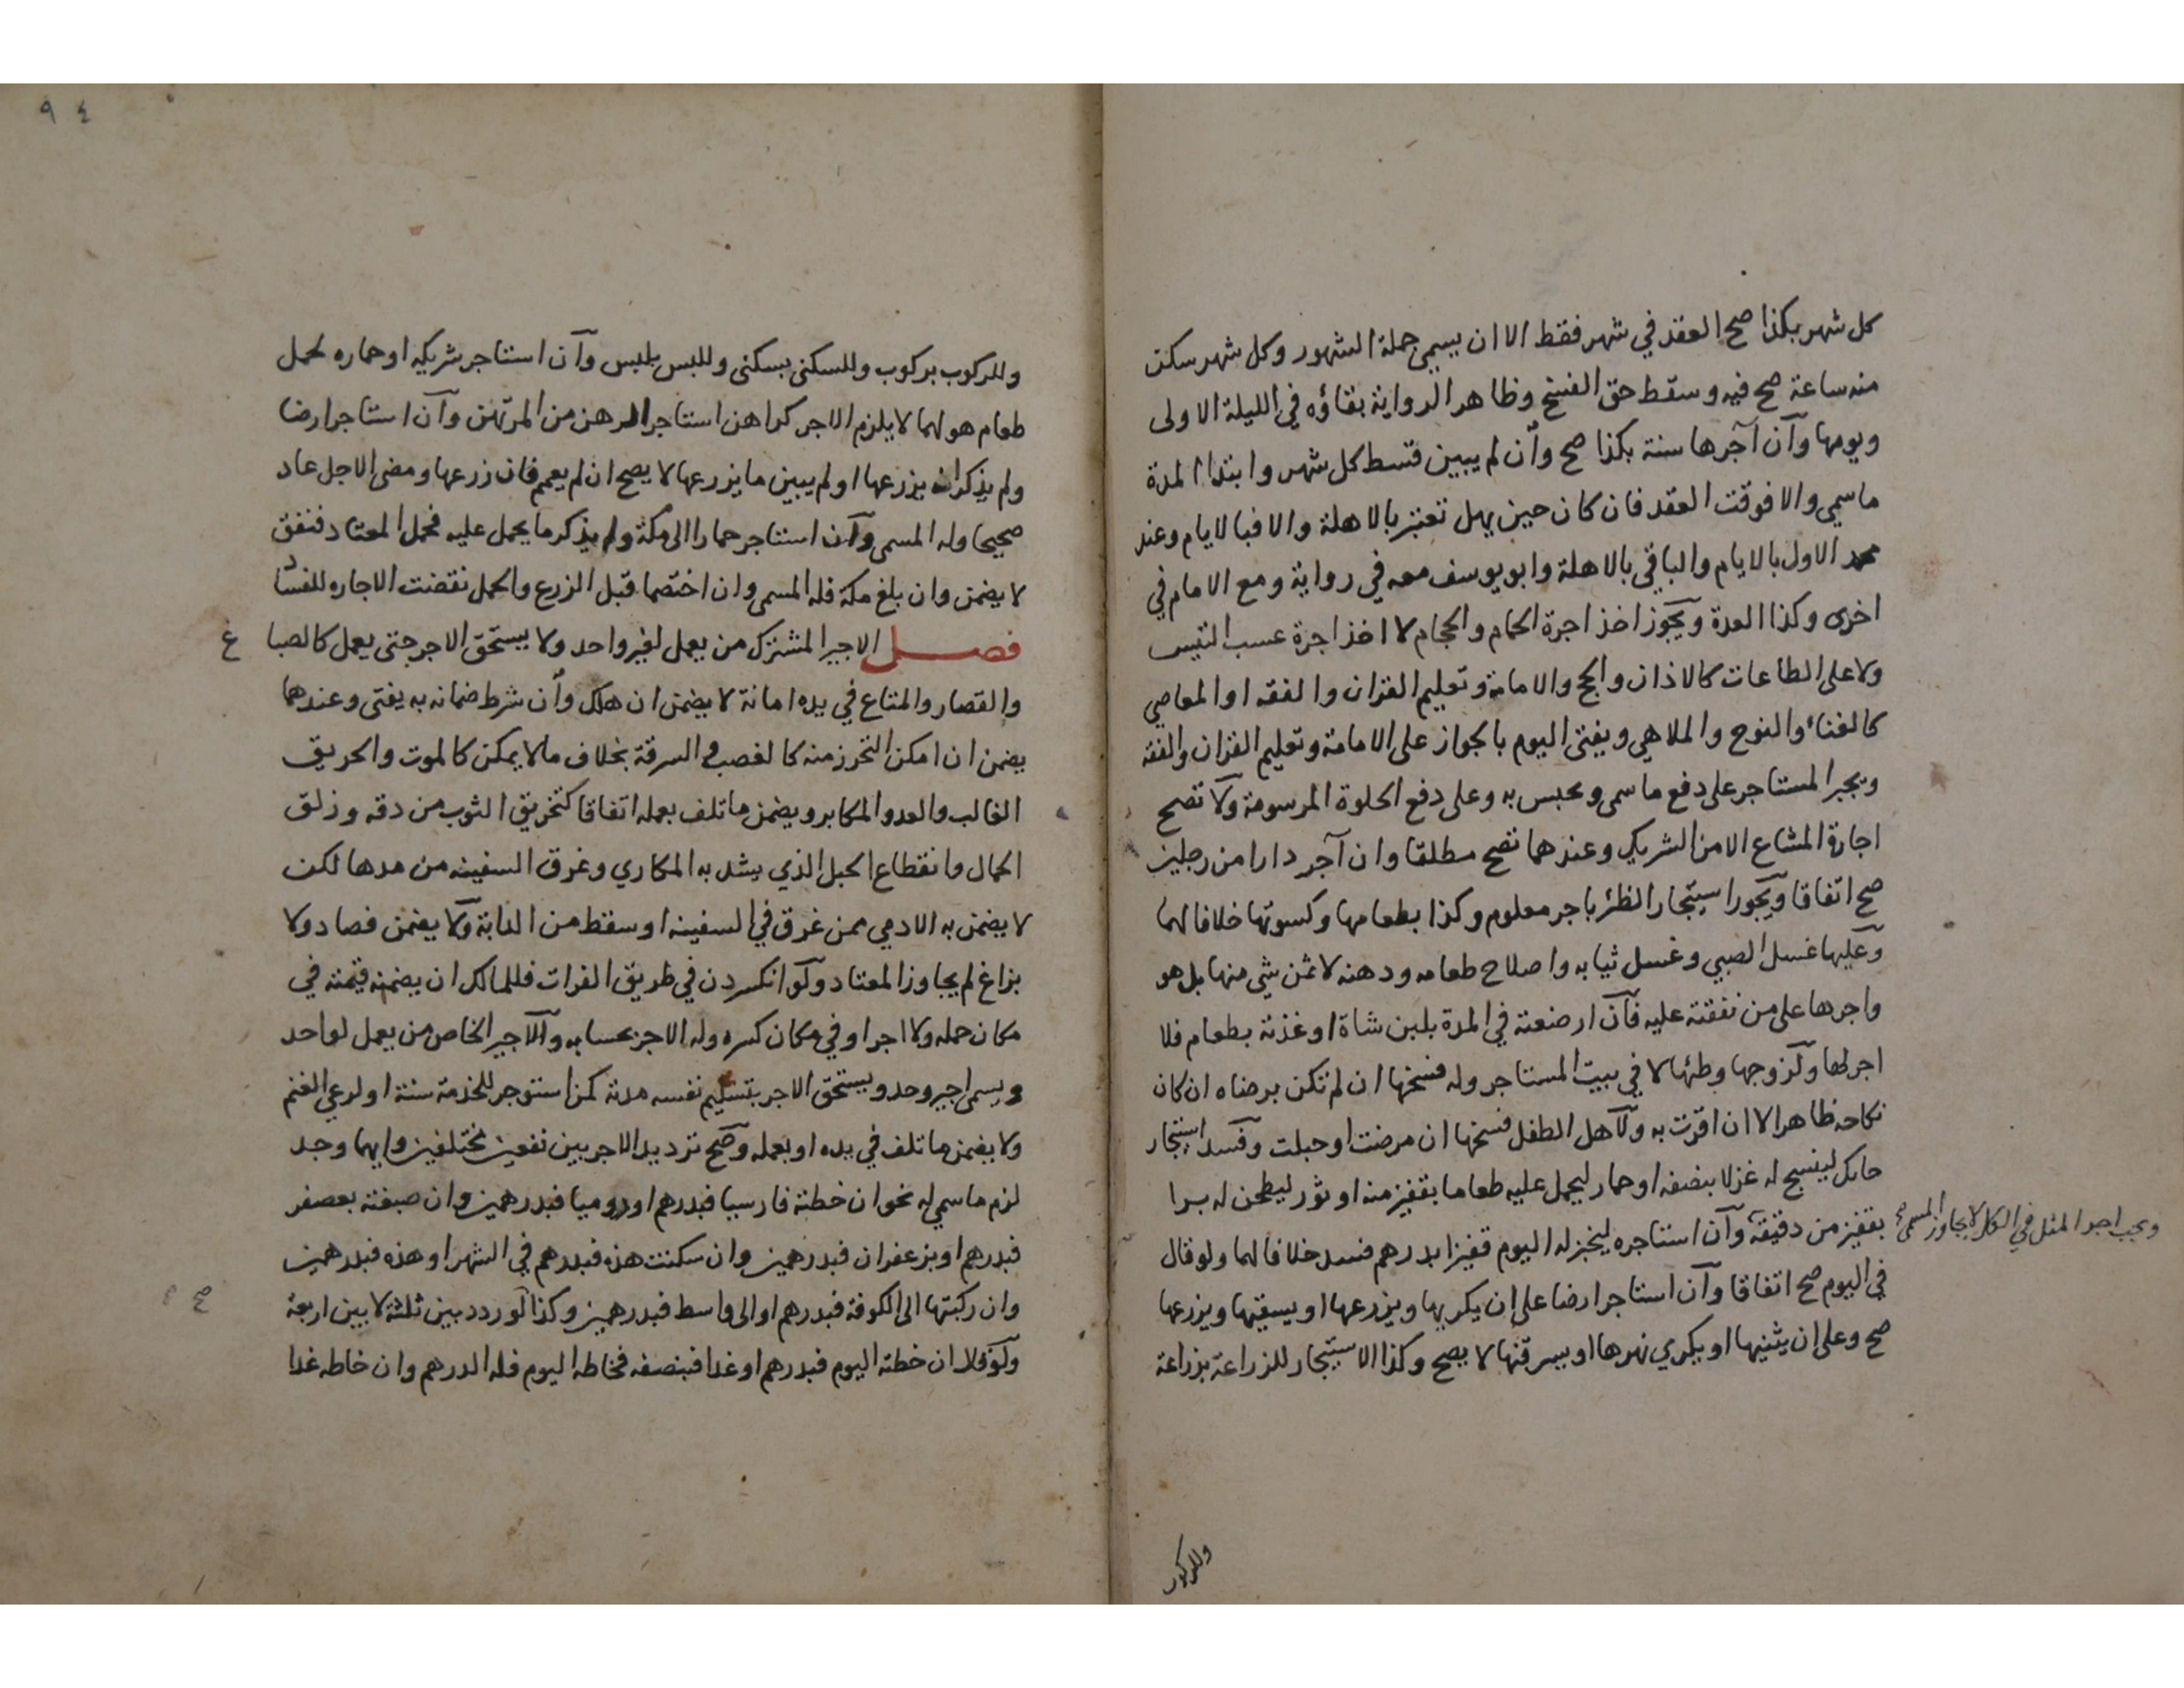 كل شهر بكذا صح العقد في شهر فقط الا ان يسمي جملة الشهور وكل شهر سكن
منه ساعة صح فيه وسقط حق الفسخ وظاهر الرواية بقاؤه في الليلة الاولى
ويومها وآن آجرها سنة بكذا صح وآن لم يبين قسط كل شهر وابتدا المدة
ما سمي والا فوقت العقد فان كان حين يهل تعتبر بالاهلة والا فبالايام وعند
محمد الاول بالايام والباقي بالاهلة وابو يوسف معه في رواية ومع الامام في
اخرى وكذا العدة ويجوز اخذ اجرة الحمام والحجام لا اخذ اجرة عسب التيس
ولا على الطاعات كالاذان والحج والامامة وتعليم القران والفقه او المعاصي
كالغناء والنوح والملاهي ويفتى اليوم بالجواز على الامامة وتعليم القران والفقه
ويجبر المستاجر على دفع ما سمى ويحبس به وعلى دفع الحلوة المرسومة ولا تصح
اجارة المشاع الا من الشريك وعندهما تصح مطلقا وان آجر دارا من رجلين
صح اتفاقا ويجوز استيجار الظئر باجر معلوم وكذا بطعامها وكسوتها خلافا لهما
وعليها غسل الصبي وغسل ثيابه واصلاح طعامه ودهنه لا ثمن شي منها بل هو
واجرها على من نفقته عليه فآن ارضعته في المدة بلبن شاة او غذته بطعام فلا
اجر لها ولزوجها وطئها لا في بيت المستاجر وله فسخها ان لم تكن برضاه ان كان
نكاحه ظاهرا لا ان اقرت به ولاهل الطفل فسخها ان مرضت او حبلت وفسد استيجار
حايك لينسج له غزلا بنصفه او حمار ليحمل عليه طعاما بقفيز منه او ثور ليطحن له برا
بقفيز من دقيقه وآن استاجره ليخبز له اليوم قفيزا بدرهم فسد خلافا لهما ولو قال
ويجب اجر المثل في الكل لا يجاوز المسمى صح
في اليوم صح اتفاقا وآن استاجر ارضا على ان يكربها ويزرعها او يسقيها ويزرعها
صح وعلى ان يثنيها او يكري نهرها او يسرقنها لا يصح وكذا الاستيجار للزراعة بزراعة
وللركوب
٩٤
وللركوب بركوب وللسكنى بسكنى وللبس بلبس وآن استاجر شريكه او حماره لحمل
طعام هو لهما لا يلزم الاجر كراهن استاجر الرهن من المرتهن وآن استاجر ارضا
ولم يذكر انه يزرعها او لم يبين ما يزرعها لا يصح ان لم يعمم فان زرعها ومضى الاجل عاد
صحيحا وله المسمى وآن استاجر حمارا الى مكة ولم يذكر ما يحمل عليه فحمل المعتاد فنفق
لا يضمن وان بلغ مكة فله المسمى وان اختصما قبل الزرع والحمل نقضت الاجاره للفساد
فصل الاجير المشترك من يعمل لغير واحد ولا يستحق الاجر حتى يعمل كالصباغ
والقصار والمتاع في يده امانة لا يضمن ان هلك وآن شرط ضمانه به يفتى وعندهما
يضمن ان امكن التحرز منه كالغصب والسرقة بخلاف ما لا يمكن كالموت والحريق
الغالب والعدو المكابر ويضمن ما تلف بعمله اتفاقا كتخريق الثوب من دقه وزلق
الحمال وانقطاع الحبل الذي يشد به المكاري وغرق السفينه من مدها لكن
لا يضمن به الادمي ممن غرق في السفينه او سقط من الدابة ولا يضمن فصاد ولا
بزاغ لم يجاوز المعتاد ولو انكسر دن في طريق الفرات فللمالك ان يضمنه قيمته في
مكان حمله ولا اجر او في مكان كسره وله الاجر بحسابه والاجير الخاص من يعمل لواحد
ويسمى اجير وحد ويستحق الاجر بتسليم نفسه مدته كمن استوجر للخدمة سنة او لرعي الغنم
ولا يضمن ما تلف في يده او بعمله وصح ترديد الاجر بين نفعين مختلفين وايهما وجد
لزم ما سمي له نحو ان خطته فارسيا فبدرهم او روميا فبدرهمين وان صبغته بعصفر
فبدرهم او بزعفران فبدرهمين وان سكنت هذه فبدرهم في الشهر او هذه فبدرهمين
وان ركبتها الى الكوفة فبدرهم او الى واسط فبدرهمين وكذا لو ردد بين ثلثة لا بين اربعة
ولو قال ان خطته اليوم فبدرهم او غدا فبنصفه فخاطه اليوم فله الدرهم وان خاطه غدا